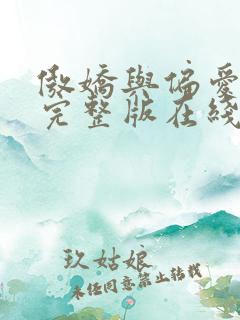 傲嬌與偏愛
完整版在綫
玖姑娘
未经同意禁止转载